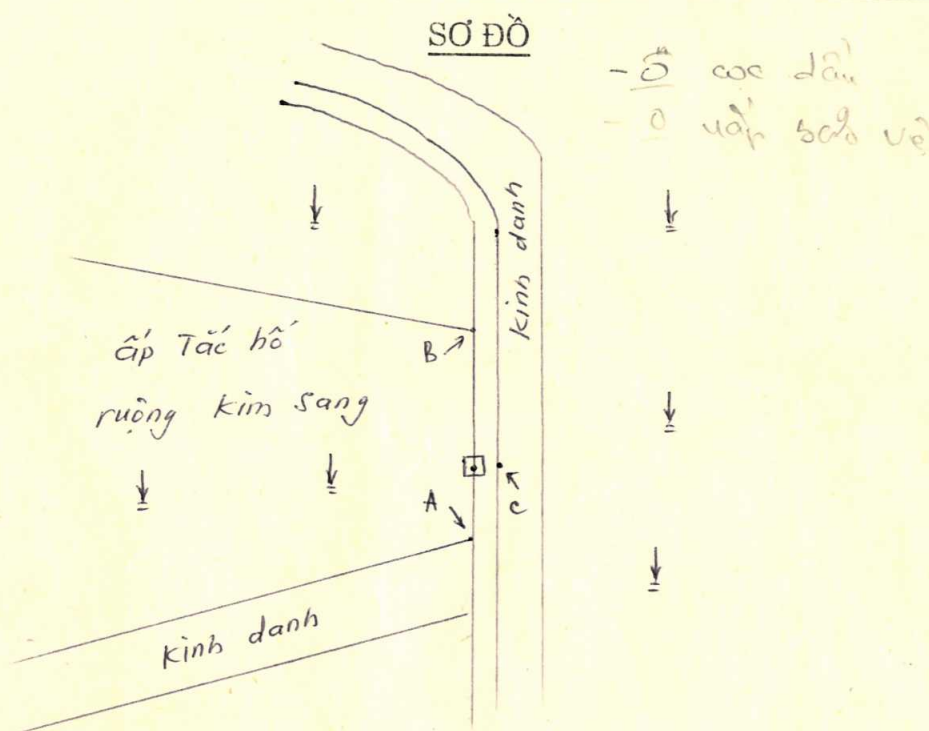 SƠ ĐỒ
- Ô cọc dấu
- O nắp bảo vệ
kinh danh
ấp Tắc hố
ruộng kim sang
B
A
C
kinh danh